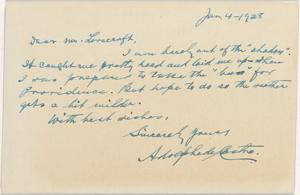 Jan 4-1928
Dear Mr. Lovecraft,
I am barely out of the "shakes".
It caught me pretty hard and laid me up when
I was prepared to take the "bus" for
Providence. But hope to do so the weather
gets a bit milder.
With best wishes,
Sincerely yours
Adolphe de Castro